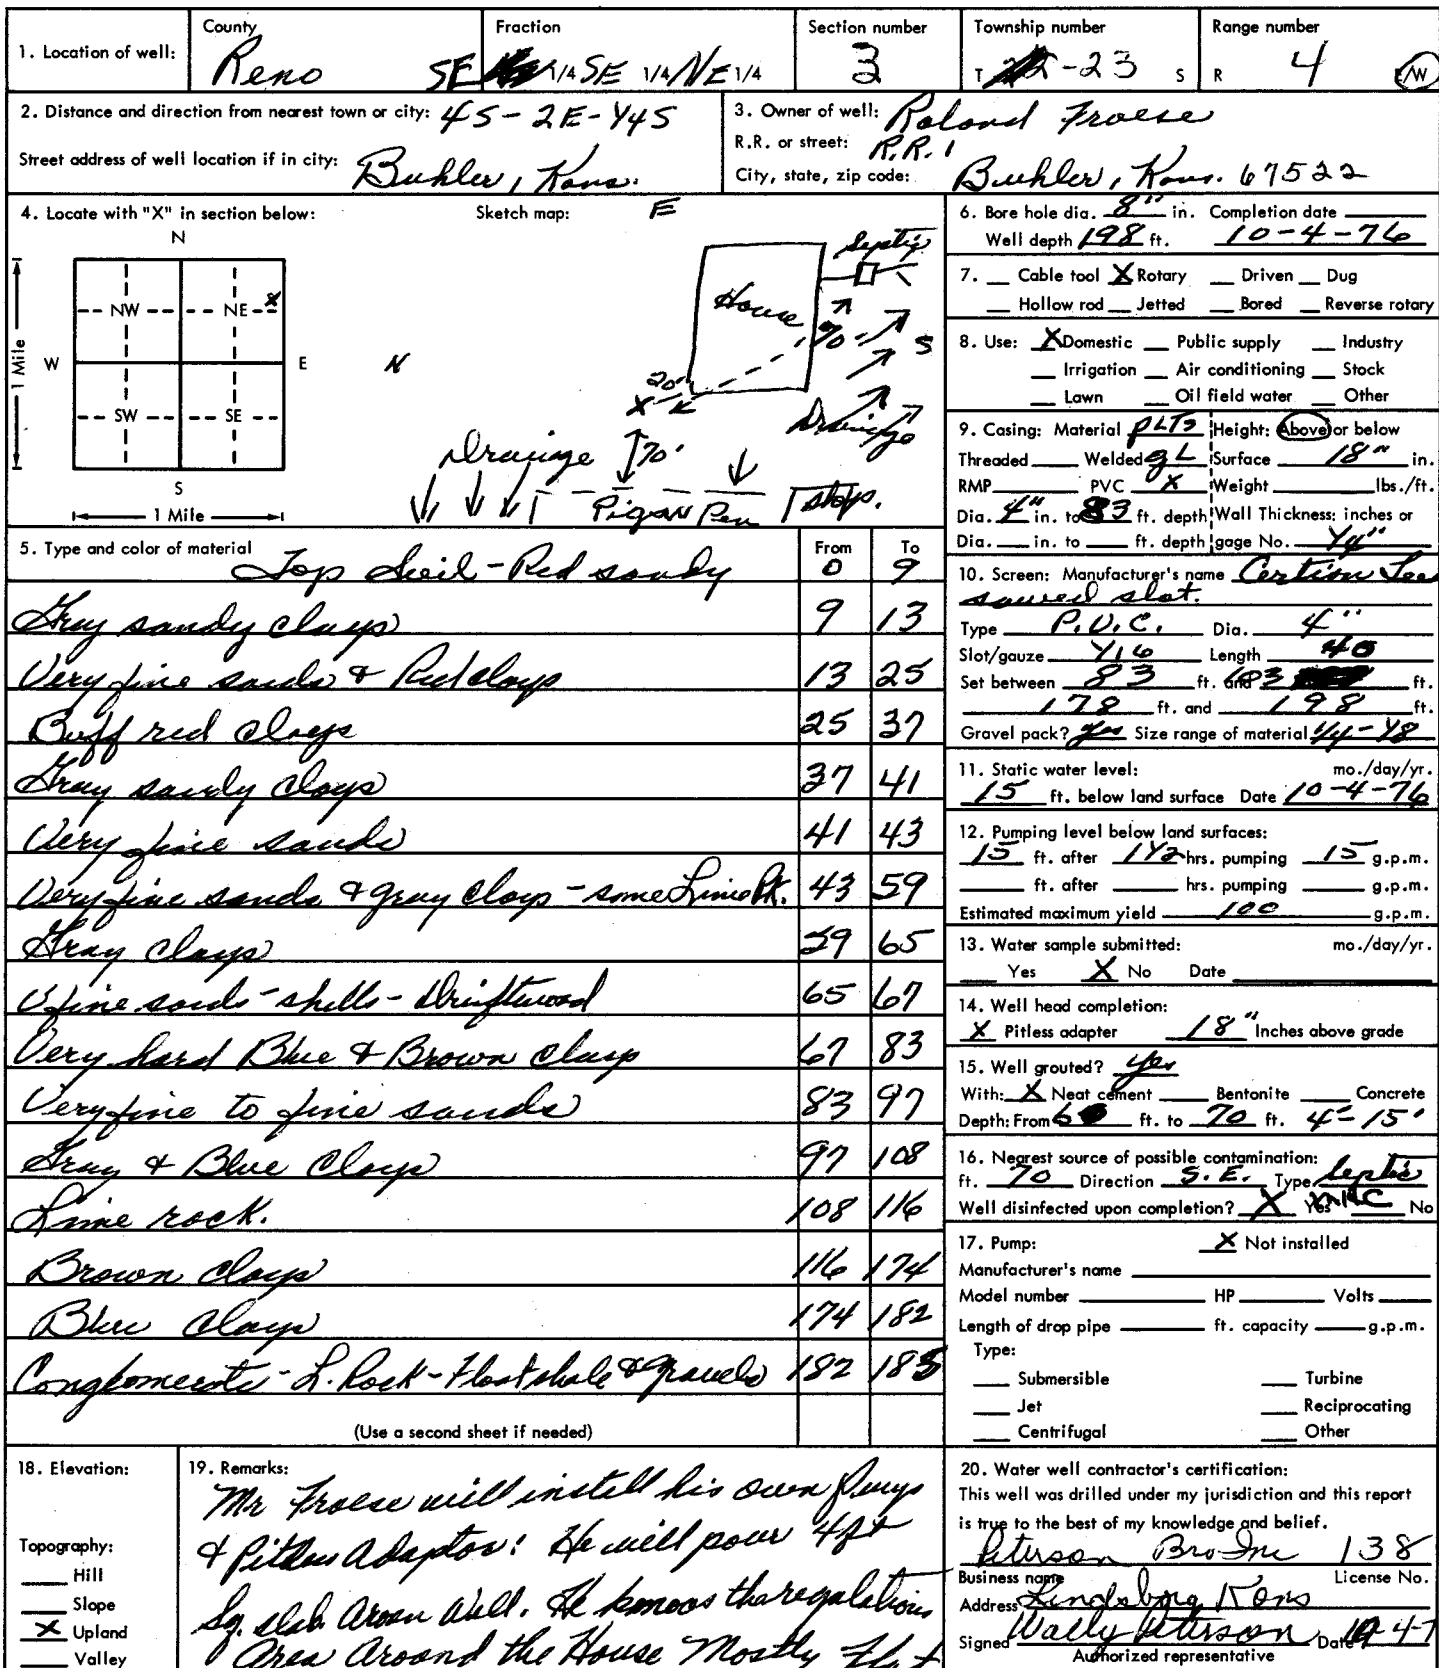 1. Location of well: County Reno Fraction SE 1/4 SE 1/4 NE 1/4 Section number 3 Township number T -23 S Range number R 4 E/W
2. Distance and direction from nearest town or city: 4S-2E-1/4S
Street address of well location if in city: Buhler, Kans.
3. Owner of well: Roland Froese
R.R. or street: R.R. 1
City, state, zip code: Buhler, Kans. 67522
4. Locate with "X" in section below:
N
NW NE X
W E
SW SE
S
1 Mile
1 Mile
Sketch map: E
Septic
House
70'
S
N
20'
X
Drainage
Drainage 70'
Pen
5. Type and color of material From To
Top Soil - Red sandy 0 9
Gray sandy clays 9 13
Very fine sands & Red clays 13 25
Buff red clays 25 37
Gray sandy clays 37 41
Very fine sands 41 43
Very fine sands & gray clays - some Lime Rk. 43 59
Gray clays 59 65
V fine sands - shells - Driftwood 65 67
Very hard Blue & Brown clays 67 83
Very fine to fine sands 83 97
Gray & Blue Clays 97 108
Lime rock. 108 116
Brown clays 116 174
Blue clays 174 182
Conglomerate - L. Rock - Float shale & gravels 182 185
(Use a second sheet if needed)
6. Bore hole dia. 8" in. Completion date
Well depth 198 ft. 10-4-76
7. Cable tool X Rotary Driven Dug
Hollow rod Jetted Bored Reverse rotary
8. Use: X Domestic Public supply Industry
Irrigation Air conditioning Stock
Lawn Oil field water Other
9. Casing: Material Height: Above or below
Threaded Welded gL Surface 18" in.
RMP PVC X Weight lbs./ft.
Dia. 4" in. to 83 ft. depth Wall Thickness: inches or
Dia. in. to ft. depth gage No. 1/4"
10. Screen: Manufacturer's name Certion Tee
sawed slot.
Type P.V.C. Dia. 4"
Slot/gauze 1/16 Length 40
Set between 83 ft. and ft.
178 ft. and 198 ft.
Gravel pack? yes Size range of material 1/4-1/8
11. Static water level: mo./day/yr.
15 ft. below land surface Date 10-4-76
12. Pumping level below land surfaces:
15 ft. after 1 1/2 hrs. pumping 15 g.p.m.
ft. after hrs. pumping g.p.m.
Estimated maximum yield 100 g.p.m.
13. Water sample submitted: mo./day/yr.
Yes X No Date
14. Well head completion:
X Pitless adapter 18" Inches above grade
15. Well grouted? yes
With: X Neat cement Bentonite Concrete
Depth: From ft. to 70 ft. 4'-15'
16. Nearest source of possible contamination:
ft. 70 Direction S.E. Type Septic
Well disinfected upon completion? X Yes No
17. Pump: X Not installed
Manufacturer's name
Model number HP Volts
Length of drop pipe ft. capacity g.p.m.
Type:
Submersible Turbine
Jet Reciprocating
Centrifugal Other
18. Elevation:
Topography:
Hill
Slope
X Upland
Valley
19. Remarks:
Mr Froese will install his own Pump
& Pitless Adaptor! He will pour 4ft
Sq. slab Aroun Well. He knows the regalations
Area Around the House Mostly Flat
20. Water well contractor's certification:
This well was drilled under my jurisdiction and this report
is true to the best of my knowledge and belief.
Peterson Bro Inc 138
Business name License No.
Address Lindsborg Kans
Signed Wally Peterson Date 10-4-7
Authorized representative